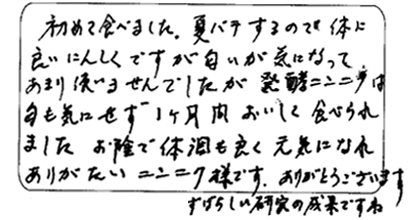 初めて食べました。夏バテするので体に
良いにんにくですが匂いが気になって
あまり使いませんでしたが 発酵ニンニクは
匂も気にせず 1ヶ月間 おいしく 食べられ
ました お陰で体調も良く 元気になれ
ありがたい ニンニク様です。ありがとうございます
すばらしい研究の成果ですね